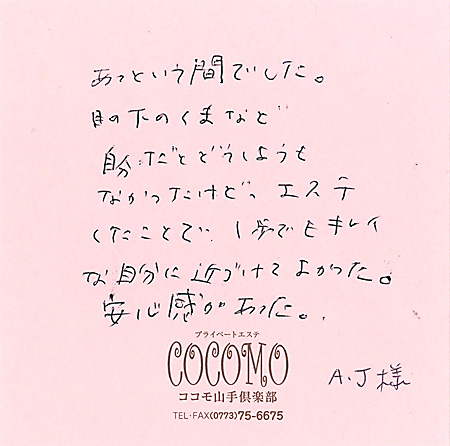 あっという間でした。
目の下のくまなど
自分だとどうしようも
なかったけど、エステ
したことで、1歩でもキレイ
な自分に近づけてよかった。
安心感があった。
プライベートエステ
COCOMO
ココモ山手倶楽部
TEL・FAX(0773)75-6675
A.J様